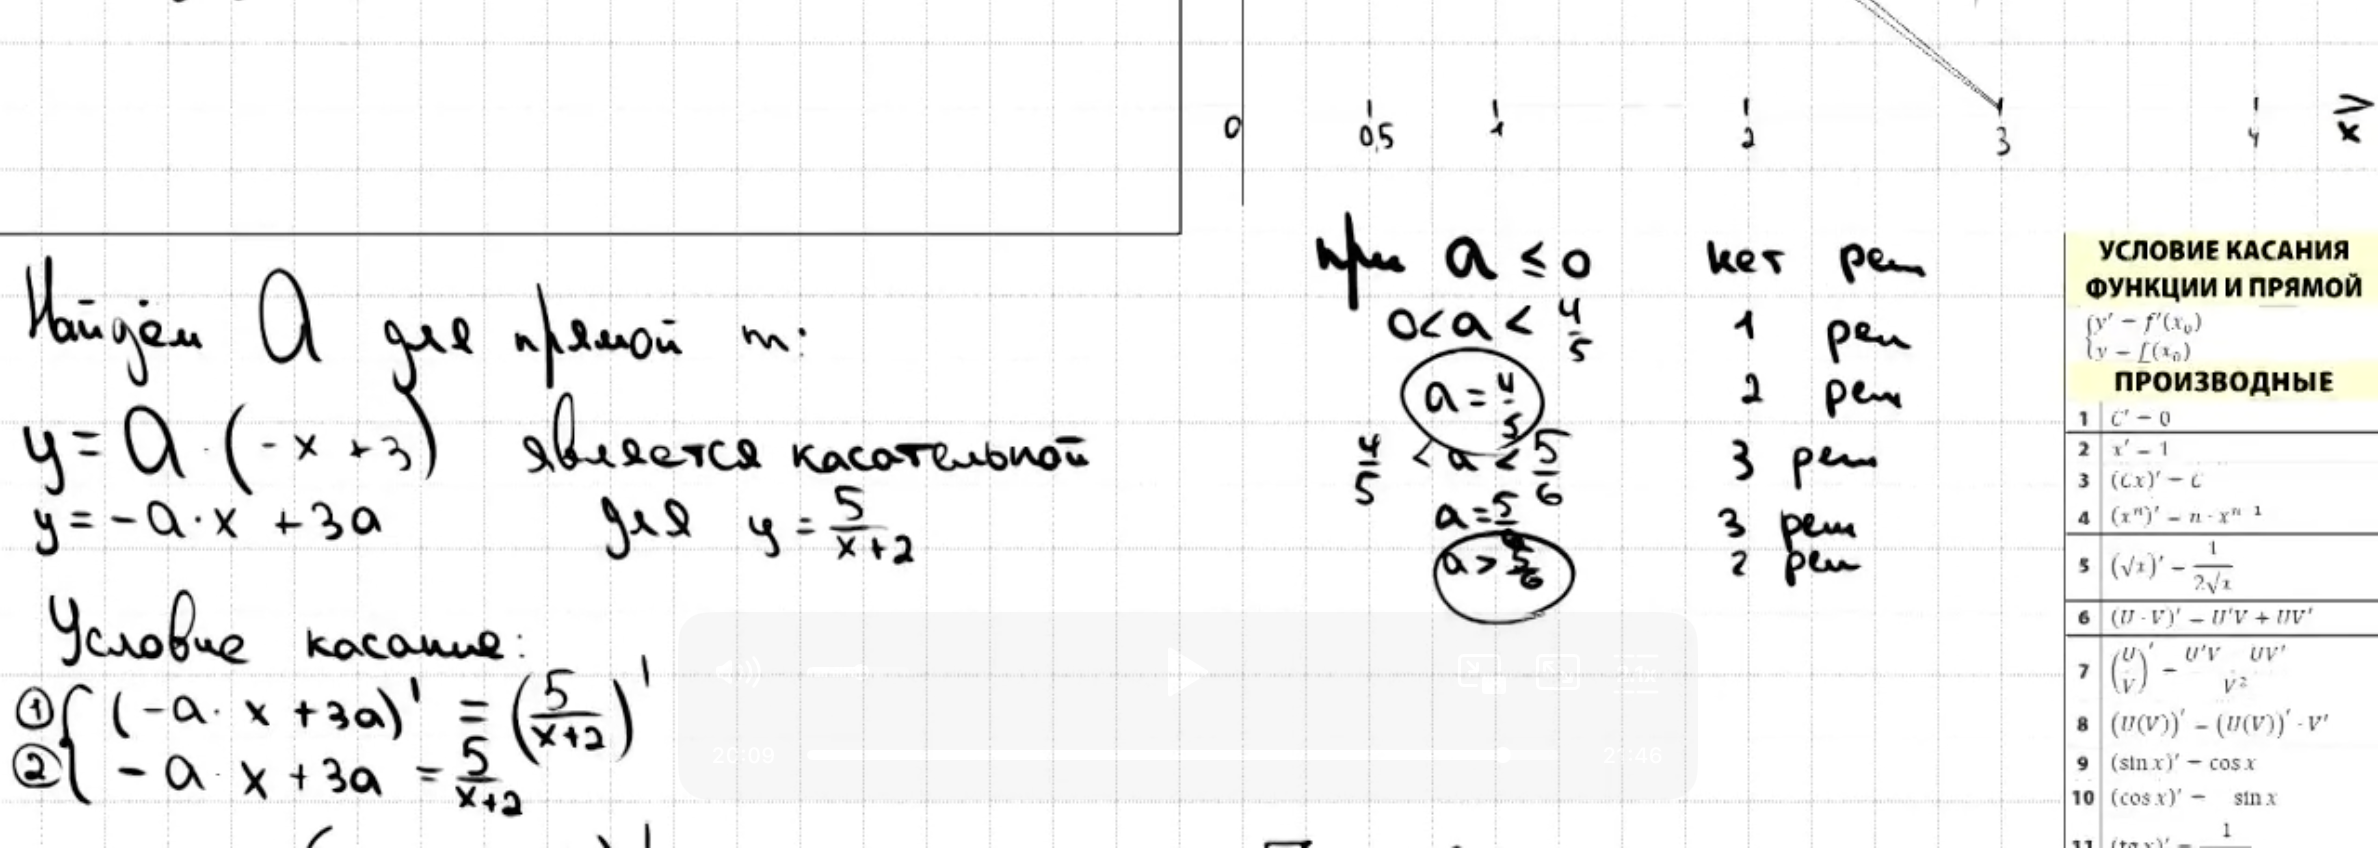 0 0,5 1 2 3 4 x
Найдём a для прямой m:
y = a · (-x + 3) является касательной
y = -a · x + 3a для y = 5/(x+2)
Условие касание:
① { (-a · x + 3a)' = (5/(x+2))'
② { -a · x + 3a = 5/(x+2)
при a ≤ 0 нет реш
0 < a < 4/5 1 реш
a = 4/5 2 реш
4/5 < a < 5/6 3 реш
a = 5/6 3 реш
a > 5/6 2 реш
УСЛОВИЕ КАСАНИЯ
ФУНКЦИИ И ПРЯМОЙ
{ y' = f'(x₀)
{ y = f(x₀)
ПРОИЗВОДНЫЕ
1 C' = 0
2 x' = 1
3 (Cx)' = C
4 (xⁿ)' = n · xⁿ⁻¹
5 (√x)' = 1/(2√x)
6 (U · V)' = U'V + UV'
7 (U/V)' = (U'V UV')/V²
8 (U(V))' = (U(V))' · V'
9 (sin x)' = cos x
10 (cos x)' = sin x
20:09 21:46